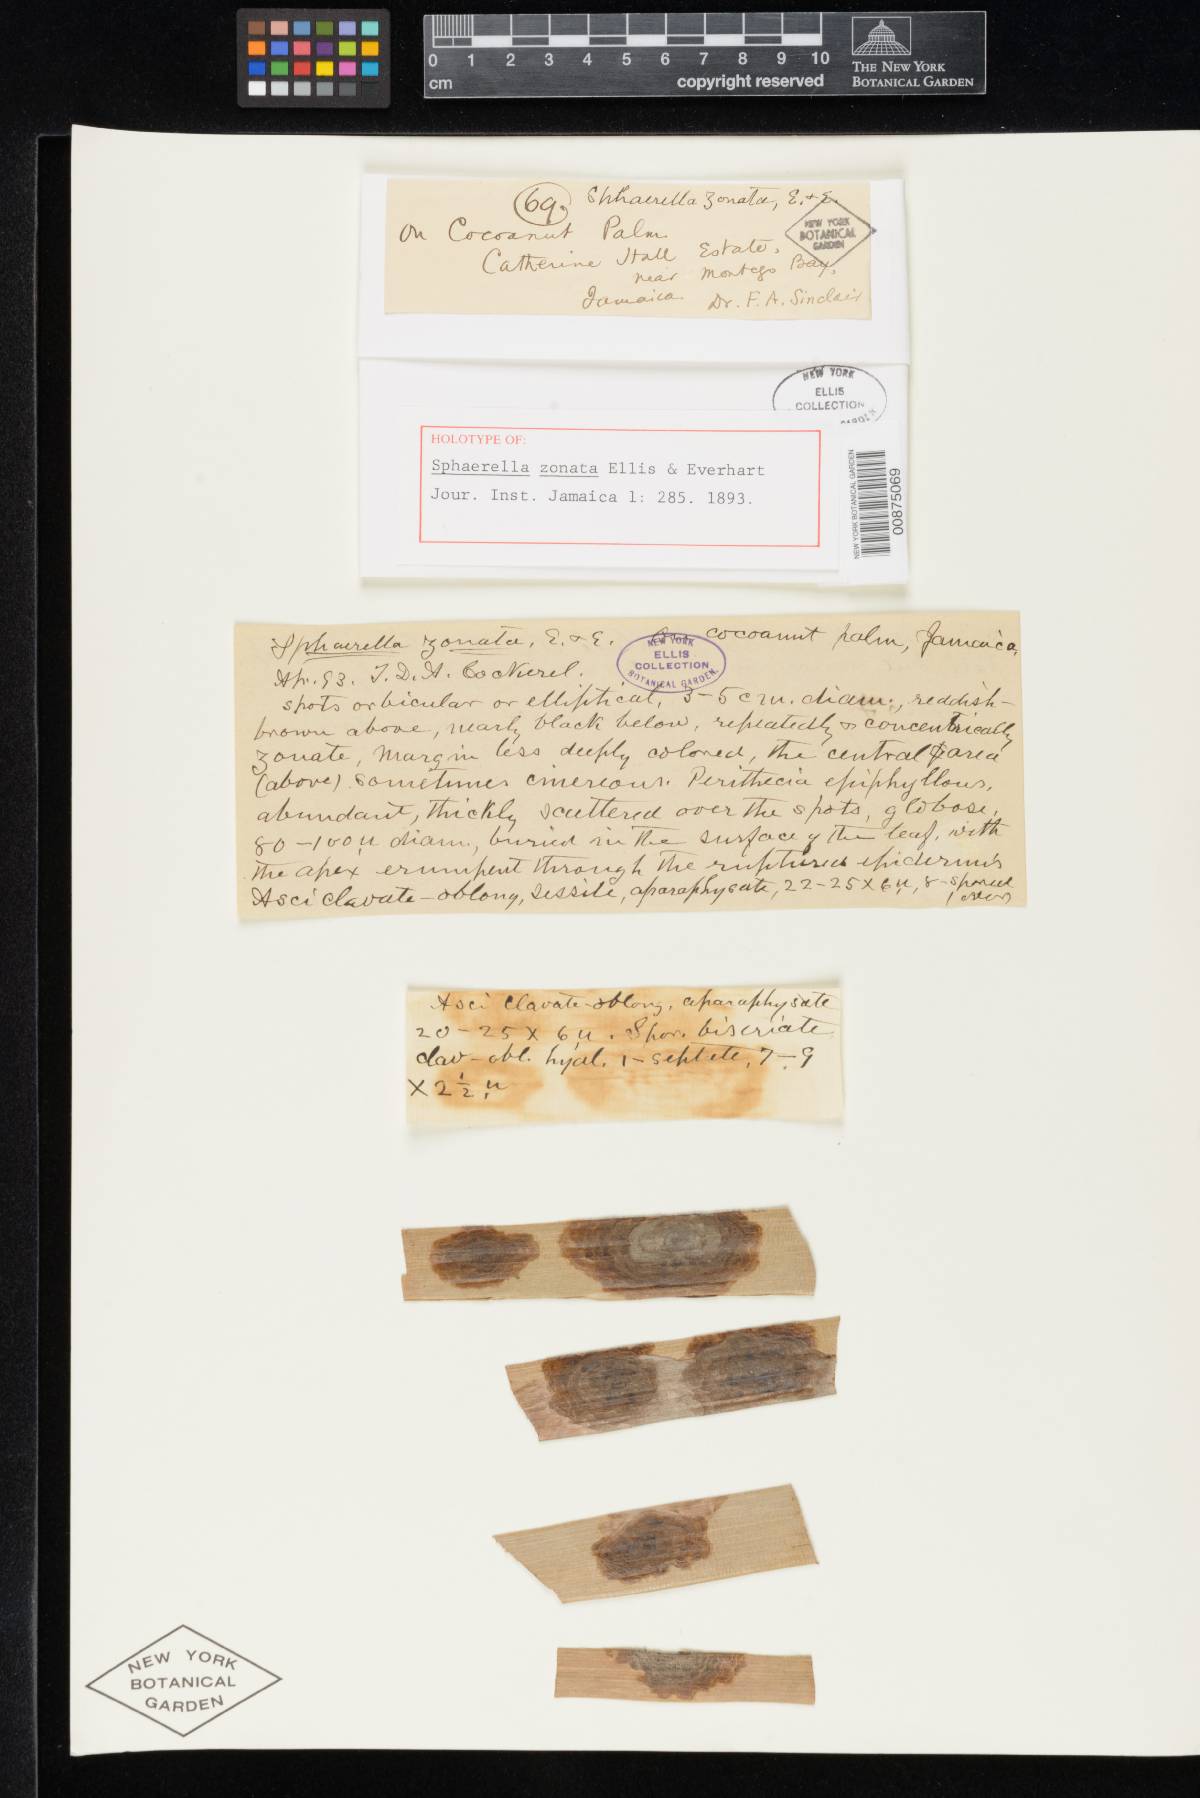 0 1 2 3 4 5 6 7 8 9 10
cm
copyright reserved
THE NEW YORK
BOTANICAL GARDEN
69. Sphaerella zonata, E. & E.
NEW YORK
BOTANICAL
GARDEN
On Cocoanut Palm
Catherine Hall Estate,
near Montego Bay,
Jamaica. Dr. F. A. Sinclair
NEW YORK
ELLIS
COLLECTION
HOLOTYPE OF:
Sphaerella zonata Ellis & Everhart
Jour. Inst. Jamaica 1: 285. 1893.
NEW YORK BOTANICAL GARDEN
00875069
Sphaerella zonata, E. & E. On cocoanut palm, Jamaica,
NEW YORK
ELLIS
COLLECTION
BOTANICAL GARDEN
Apr. 93. T. D. A. Cockerel.
spots orbicular or elliptical, 3-5 cm. diam., reddish-
brown above, nearly black below, repeatedly & concentrically
zonate, margin less deeply colored, the central area
(above) sometimes cinereous. Perithecia epiphyllous,
abundant, thickly scattered over the spots, globose,
80-100 µ diam., buried in the surface of the leaf, with
the apex erumpent through the ruptured epidermis
Asci clavate-oblong, sessile, aparaphysate, 22-25 x 6 µ, 8-spored
Asci clavate-oblong, aparaphysate
20-25 x 6 µ. Spor. biseriate
clav-obl. hyal. 1-septete, 7-9
x 2 1/2 µ
NEW YORK
BOTANICAL
GARDEN